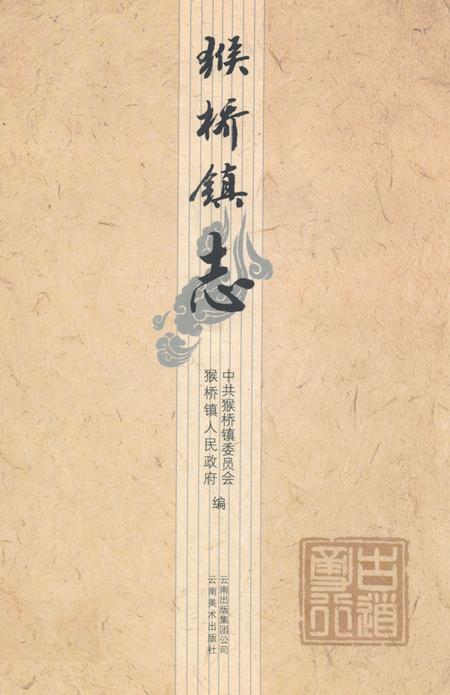 猴桥镇志
中共猴桥镇委员会
猴桥镇人民政府
编
云南出版集团公司
云南美术出版社
古道
勇行